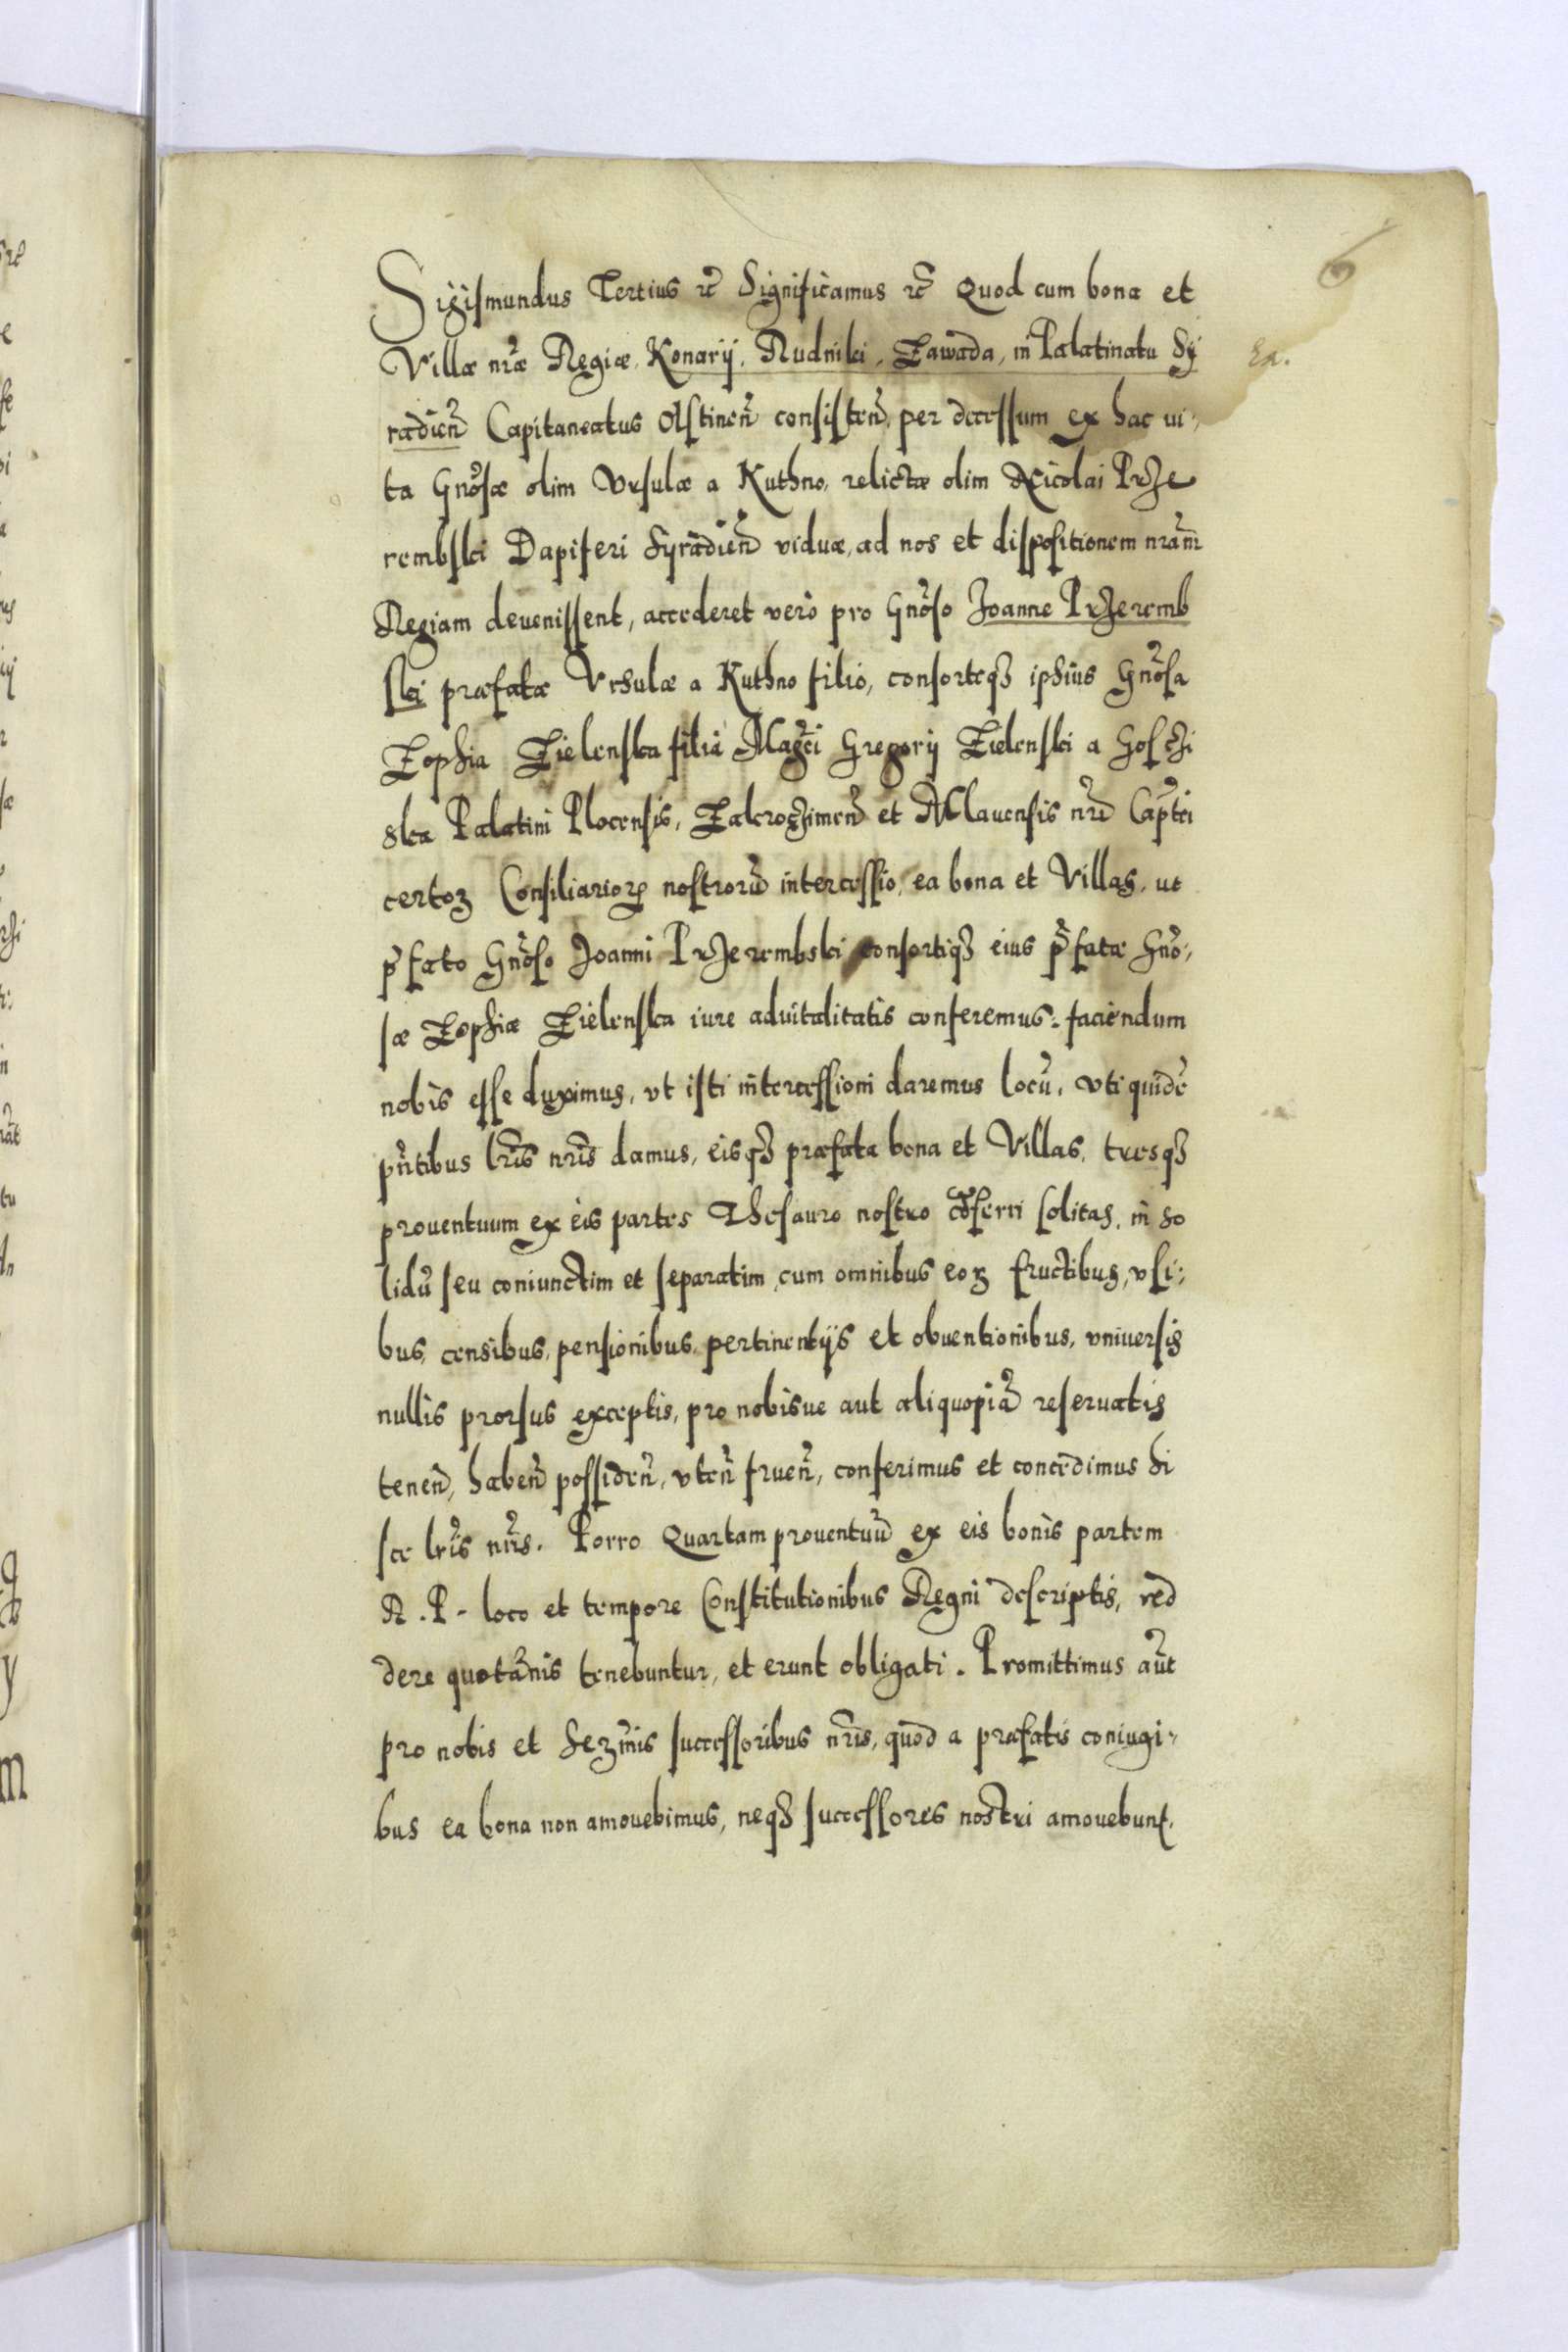 6
Sigismundus Tertius etc̃ Significamus etc̃ Quod cum bona et
Villæ nr̃æ Regiæ, Konarÿ, Rudniki, Zawada, in Palatinatu Sÿ
Ea.
radień Capitaneatus Olstineñ consisteñ, per decessum ex hac ui,
ta Gnõsæ olim Vrsulæ a Kuthno, relictæ olim Nicolai Prze
rembski Dapiferi Sÿradień viduæ, ad nos et dispositionem nr̃am
Regiam deuenissent, accederet verò pro Gnõso Joanne Przeremb
ski præfatæ Vrsulæ a Kuthno filio, consorteqʒ ipsius Gnõsa
Zophia Zielenska filia Mag̃ci Gregorÿ Zielenski a Goszczi
ska Palatini Plocensis, Zakrozimeñ et Mlauensis nr̃i Cap̃tei
certoꝝ Consiliarioꝝ nostrorũ intercessio, ea bona et Villas, ut
p̃fato Gnõso Joanni Przerembski consortiqʒ eius p̃fatæ Gnõ,
sæ Zophiæ Zielenska iure aduitalitatis conferemus: faciendum
nobis esse duximus, vt isti intercessioni daremus locũ, vti quidẽ
pñtibus lr̃is nr̃is damus, eisqʒ præfata bona et Villas, tresqʒ
prouentuum ex eis partes Thesauro nostro cõferri solitas, in so
lidũ seu coniunctim et separatim, cum omnibus eoꝝ fructibus, vsi,
bus, censibus, pensionibus, pertinentÿs et obuentionibus, vniuersis
nullis prorsus exceptis, pro nobisue aut aliquopiã reseruatis
teneñ, habeñ possideñ, vteñ frueñ, conferimus et concedimus hi
sce lr̃is nr̃is. Porro Quartam prouentuũ ex eis bonis partem
R. P. loco et tempore Constitutionibus Regni descriptis, red
dere quotãnis tenebuntur, et erunt obligati. Promittimus aũt
pro nobis et Serm̃is successoribus nr̃is, quod a præfatis coniugi,
bus ea bona non amouebimus, neqʒ successores nostri amouebunt,